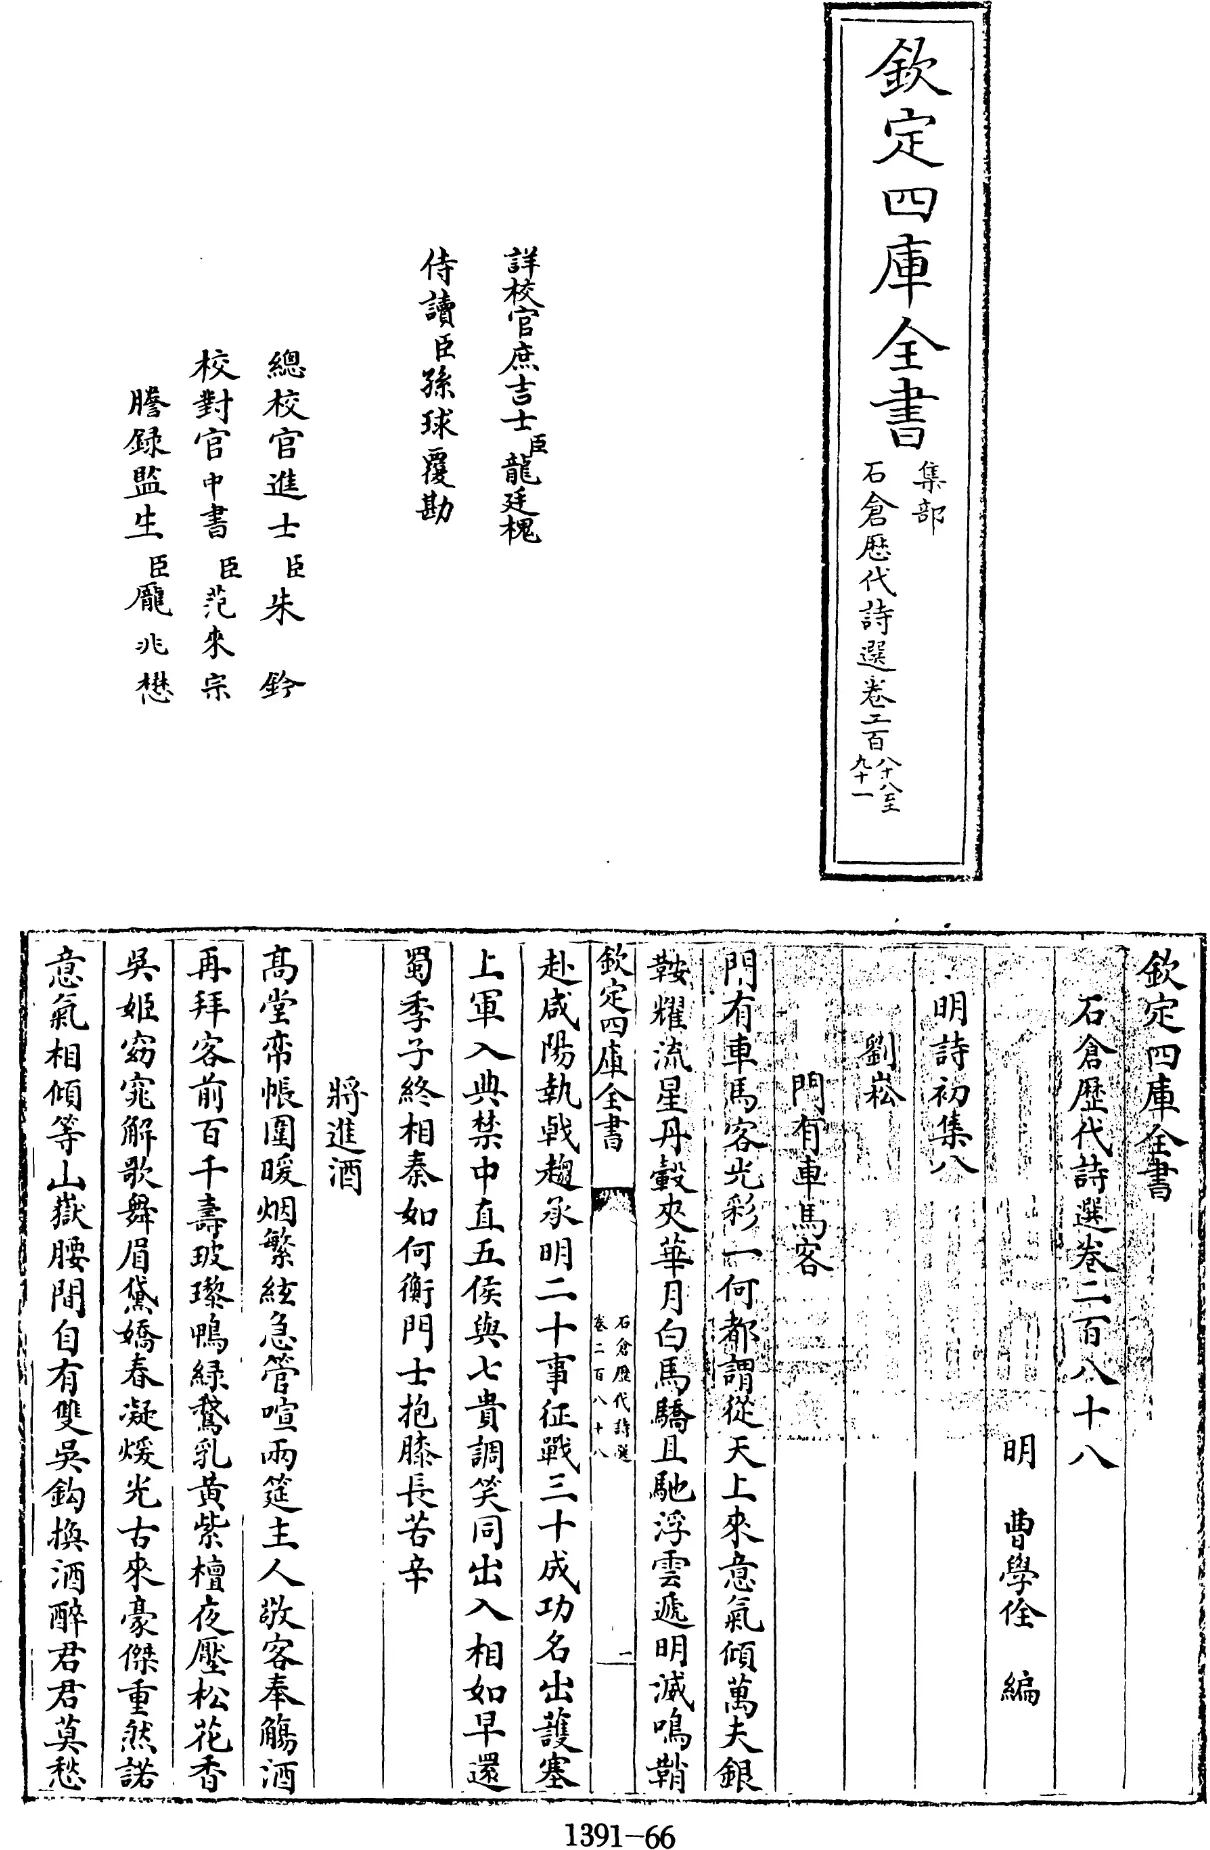 欽定四庫全書
集部
石倉歷代詩選卷二百
八十八至
九十一
詳校官庶吉士臣龍廷槐
侍讀臣孫球覆勘
總校官進士臣朱鈐
校對官中書臣范來宗
謄録監生臣龐兆懋
欽定四庫全書
石倉歷代詩選卷二百八十八
明 曹學佺 編
明詩初集八
劉崧
門有車馬客
門有車馬客光彩一何都謂從天上來意氣傾萬夫銀
鞍耀流星丹轂夾華月白馬驕且馳浮雲遞明滅鳴鞘
欽定四庫全書
石倉歷代詩選
卷二百八十八
一
赴咸陽執戟趨承明二十事征戰三十成功名出護塞
上軍入典禁中直五侯與七貴調笑同出入相如早還
蜀季子終相秦如何衡門士抱膝長苦辛
將進酒
髙堂帟帳圍暖烟繁絃急管喧兩筵主人敬客奉觴酒
再拜客前百千壽玻瓈鴨緑鵞乳黄紫檀夜壓松花香
吳姬窈窕解歌舞眉黛嬌春凝煖光古來豪傑重然諾
意氣相傾等山嶽腰間自有雙吳鈎換酒醉君君莫愁
1391-66